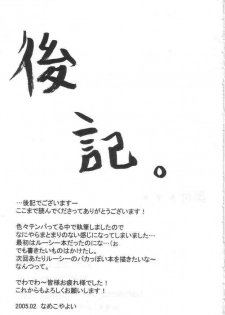 後記。
…後記でございますー
ここまで読んでくださってありがとうございます！
色々テンパってる中で執筆しましたので
なにやらまとまりのない感じになってしまいました…
最初はルーシー本だったのにな…（ぉ
でも書きたいものがかけたので満足。
次回あたりルーシーのバカっぽい本を描きたいなー
なんつって。
でわでわ～皆様お疲れ様でした！
これからもよろしくお願いします！
2005.02 なめこやよい